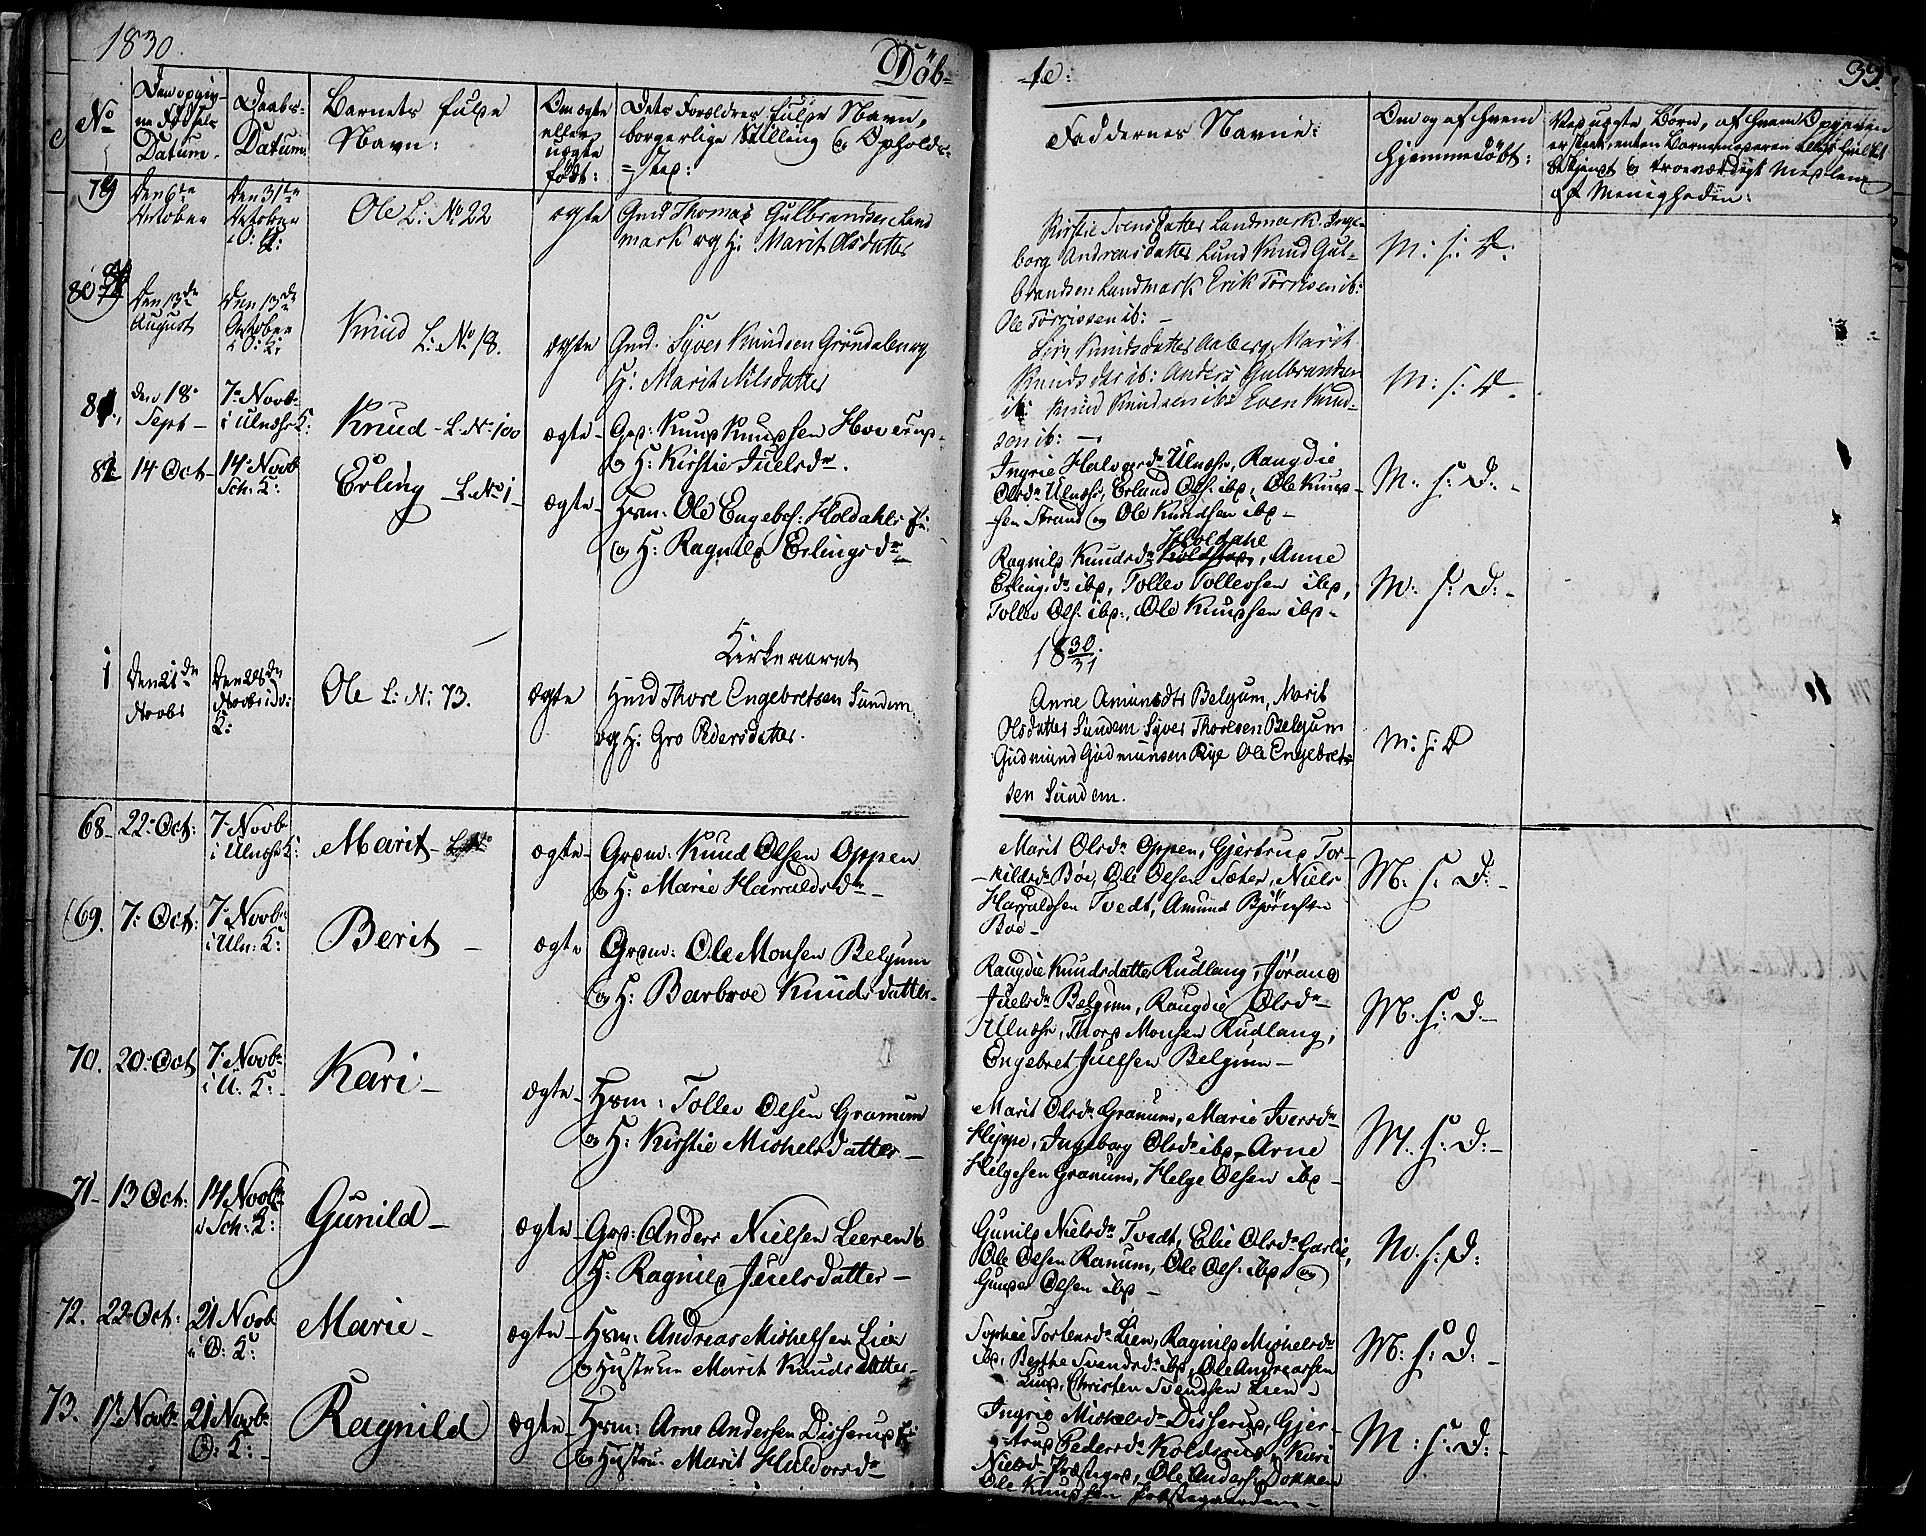 1830.
Döb-
-te:
33.
No
Den opgiv-
ne Födsels
Datum.
Daabs-
Datum.
Barnets fulde
Navn:
Om ægte
eller
uægte
födt:
Dets Forældres fulde Navn,
borgerlige Stilling og Opholds-
=Sted:
Faddernes Navne:
Om og af hvem
hjemmedöbt:
Ved uægte Börn, af hvem Opgiven
er skeet, enten Barnemoderen eller hvilket
bekjendt og troeværdigt Medlem
af Menigheden:
79
Den 6te
October
Den 31te
October
i O: K:
Ole L: No 22
ægte
Gmd Thomas Gulbrandsen Land
mark og H: Marit Olsdatter
Kirstie Svensdatter Landmark Inge-
borg Andreasdatter Lund Knud Gul-
brandsen Landmark Erik Törrisen ib:
Ole Törrissen ib: -
M: f: D:
80
Den 13de
August
Den 13de
October
i O: K:
Knud L: No 18.
ægte
Gmd. Syver Knudsen Gröndalen og
H: Marit Nilsdatter
Siri Knudsdatter Aaberg, Marit
Knudsdat ib: Anders Gulbrandsen
ib: Knud Knudsen ibd Even Knud-
sen ib: -
M: f: D -
81,
den 18
Sept -
7 Novb.
i Ulnæs K:
Knud - L. No 100
ægte -
Grd: Knud Knudsen Hoverud-
og H: Kirstie Juelsdr.
Ingrie Halvordr Ulnæs, Rangdie
Olsdr Ulnæs, Erland Ols: ibd, Ole Knud-
-sen Strand og Ole Knudsen ibd -
M: f: D: -
82
14 Oct -
14 Novb
Sch: K:
Erling - L. No 1 -
ægte -
Hsm: Ole Engebs: Holdahls Ei:
og H: Ragnild Erlingsdr
Ragnild Knudsdr Holdahl, Anne
Erlingsdr ibd, Tollev Tollevsen ibd,
Tollev Ols: ibd:, Ole Knudsen ibd -
M: f: D: -
Kirkeaaret
1830/31
1
Den 21de
Novbr
Den 28de
Novbr i Ul:
K:
Ole L: N: 73.
ægte
Hmd Thore Engebretsen Sundem
og H: Gro Pedersdatter.
Anne Amundsdtr Belgum, Marit
Olsdatter Sundem Syver Thoresen Belgum
Gudmund Gudmunsen Rye Ole Engebret-
sen Sundem.
M: f: D
68 -
22 Oct:
7 Novb
i Ulnæs K:
Marit -
ægte -
Grdm: Knud Olsen Oppen
og H: Marie Harraldsdr -
Marit Olsdr Oppen, Gjertrud Tor-
-kildsdr Böe, Ole Olsen Sæter, Niels
Harraldsen Tvedt, Amund Björnsen
Böe -
M: f: D: -
69.
7 Oct:
7 Novb
i Uln: K:
Berit -
ægte
Grdm: Ole Monsen Belgum
og H: Barbroe Knudsdatter -
Rangdie Knudsdatter Rudlang, Jörand
Juelsdr Belgum, Rangdie Olsdr
Ulnæs, Thord Monsen Rudlang,
Engebret Juelsen Belgum -
M: f: D: -
70.
20 Oct
7 Novb
i U: K:
Kari -
ægte -
Hsm: Tollev Olsen Granum
og H: Kirstie Michelsdatter -
Marit Olsdr Granum, Marie Iversdr
Hippe, Ingeborg Olsdr ibd, Arne
Helgesen Granum, Helge Olsen ibd -
M: f: D: -
71 -
13 Oct:
14 Novb
i Sch: K:
Gunild -
ægte -
Grd: Anders Nielsen Leeren &
H: Ragnild Juelsdatter -
Gunild Nielsdr Tvedt, Elie Olsdr Garlie,
Ole Olsen Ranum, Ole Ols: ibd, og
Gunder Olsen ibd -
M: f: D:
72.
22 Oct:
21 Novb
i O: K:
Marie -
ægte -
Hsm: Andreas Michelsen Lien
og Hustrue Marit Knudsdatter -
Sophie Torstensdr Lien, Ragnild Michelsdr
ibd, Berthe Svendsdr ibd, Ole Andreassen
Lund, Christen Svendsen Lien -
M: f: D: -
73.
17 Novb
21 Novb
O: K: -
Ragnild
ægte -
Hsm: Arne Andersen Disserud Ei
og Hustru Marit Haldorsdr
Ingrie Michelsdr Disserud, Gjer-
-trud Pedersdr Kolderud, Kari
Nielsd: Præstegrd, Ole Anders: Dokken
Ole Knudsen Præstegaarden -
M: f: D: -